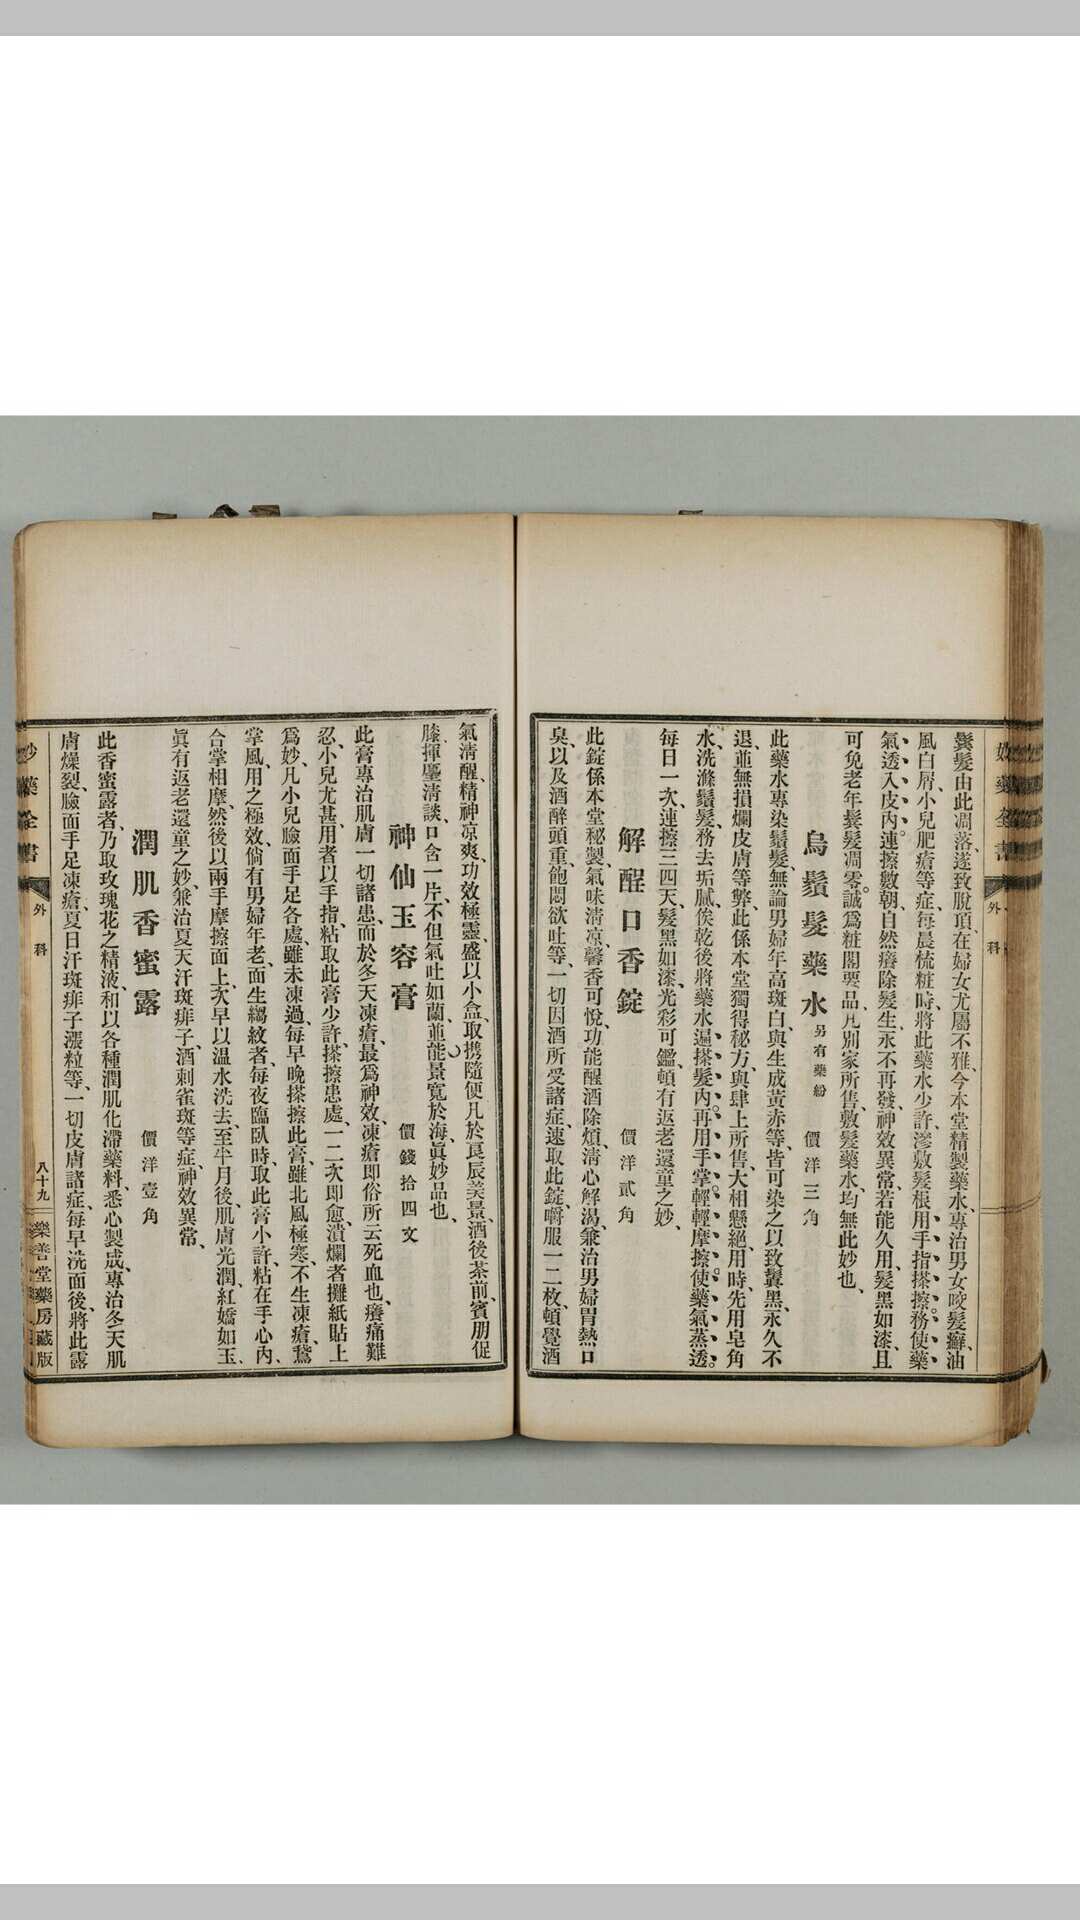 妙藥全書
外科
鬢髮由此凋落、遂致脫頂、在婦女尤屬不雅、今本堂精製藥水、專治男女咬髮癬、油
風白屑、小兒肥瘡等症、每晨梳粧時、將此藥水少許、滲敷髮根、用手指搽擦、務使藥
氣透入皮內、連擦數朝、自然癢除髮生、永不再發、神效異常、若能久用、髮黑如漆、且
可免老年鬓髮凋零、誠為粧閣要品、凡別家所售、敷髮藥水、均無此妙也、
烏鬚髮藥水 另有藥粉 價洋三角
此藥水專染鬚髮、無論男婦年高斑白、與生成黃赤等、皆可染之、以致鬒黑、永久不
退、並無損爛皮膚等弊、此係本堂獨得秘方、與肆上所售、大相懸絕、用時、先用皂角
水、洗滌鬚髮、務去垢膩、俟乾後、將藥水、遍搽髮內、再用手掌輕輕摩擦、使藥氣蒸透、
每日一次、連擦三四天、髮黑如漆、光彩可鑑、頓有返老還童之妙、
解酲口香錠 價洋貳角
此錠係本堂秘製、氣味清凉、馨香可悅、功能醒酒除煩、清心解渴、兼治男婦胃熱口
臭、以及酒醉頭重、飽悶欲吐等、一切因酒所受諸症、速取此錠、嚼服一二枚、頓覺酒
氣清醒、精神凉爽、功效極靈、盛以小盒、取携隨便、凡於良辰美景、酒後茶前、賓朋促
膝、揮麈清談、口含一片、不但氣吐如蘭、並能景寬於海、眞妙品也、
神仙玉容膏 價錢拾四文
此膏專治肌膚一切諸患、而於冬天凍瘡、最爲神效、凍瘡即俗所云死血也、癢痛難
忍、小兒尤甚、用者以手指、粘取此膏少許、搽擦患處、一二次即愈、潰爛者攤紙貼上
爲妙、凡小兒臉面手足各處、雖未凍過、每早晚搽擦此膏、雖北風極寒、不生凍瘡、鵞
掌風、用之極效、倘有男婦年老、面生縐紋者、每夜臨臥時、取此膏小許、粘在手心內、
合掌相摩、然後以兩手摩擦面上、次早以温水洗去、至半月後、肌膚光潤、紅嬌如玉、
眞有返老還童之妙、兼治夏天汗斑痱子、酒刺雀斑等症、神效異常、
潤肌香蜜露 價洋壹角
此香蜜露者、乃取玫瑰花之精液、和以各種潤肌化滯藥料、悉心製成、專治冬天肌
膚燥裂、臉面手足凍瘡、夏日汗斑痱子漲粒等、一切皮膚諸症、每早洗面後、將此露
妙藥全書
外科
八十九
樂善堂藥房藏版